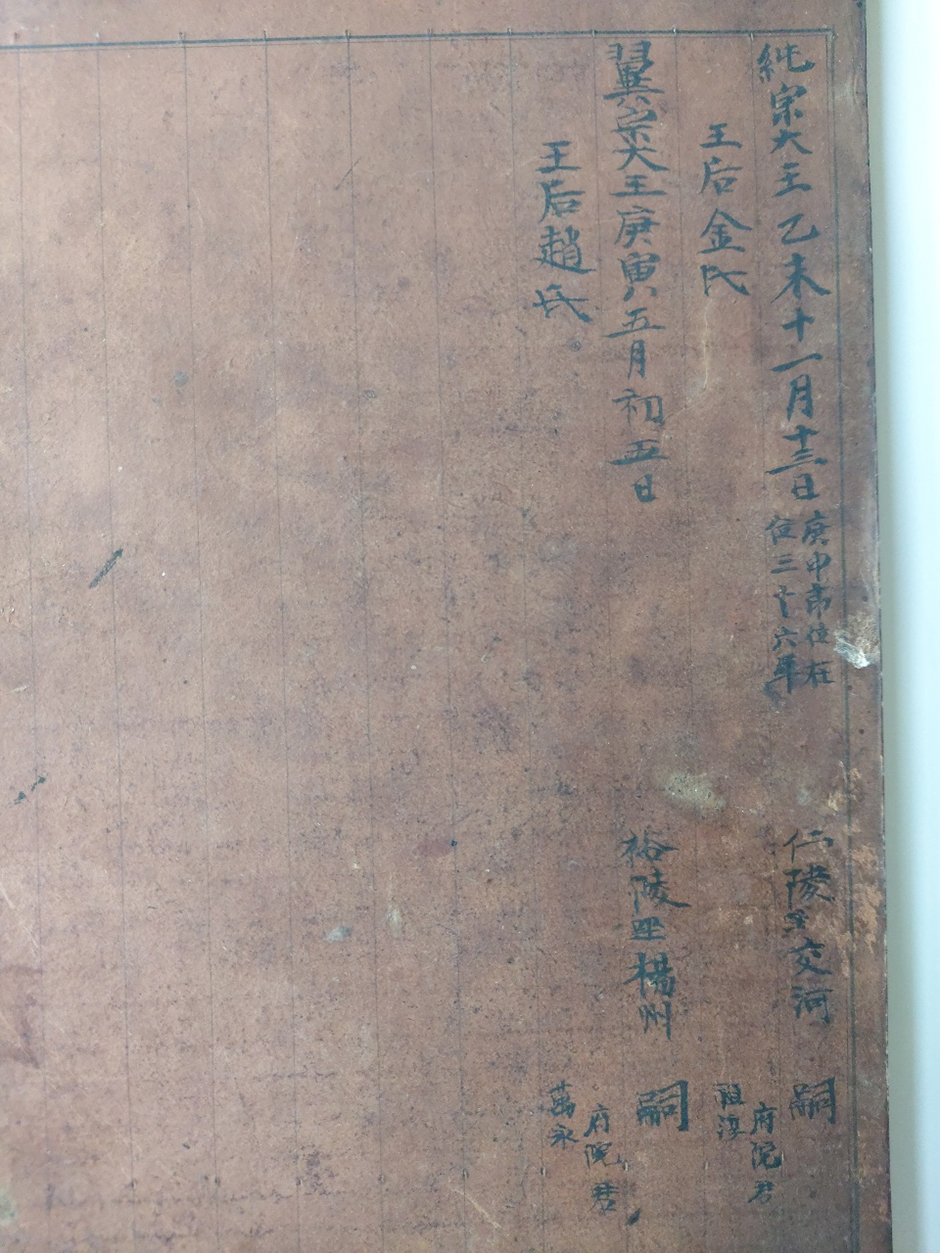 純宗大王乙未十一月十三日
庚申即位在
位三十六年
仁陵交河
嗣
王后金氏
府院君
祖淳
翼宗大王庚寅五月初五日
裕陵楊州
嗣
王后趙氏
府院君
萬永